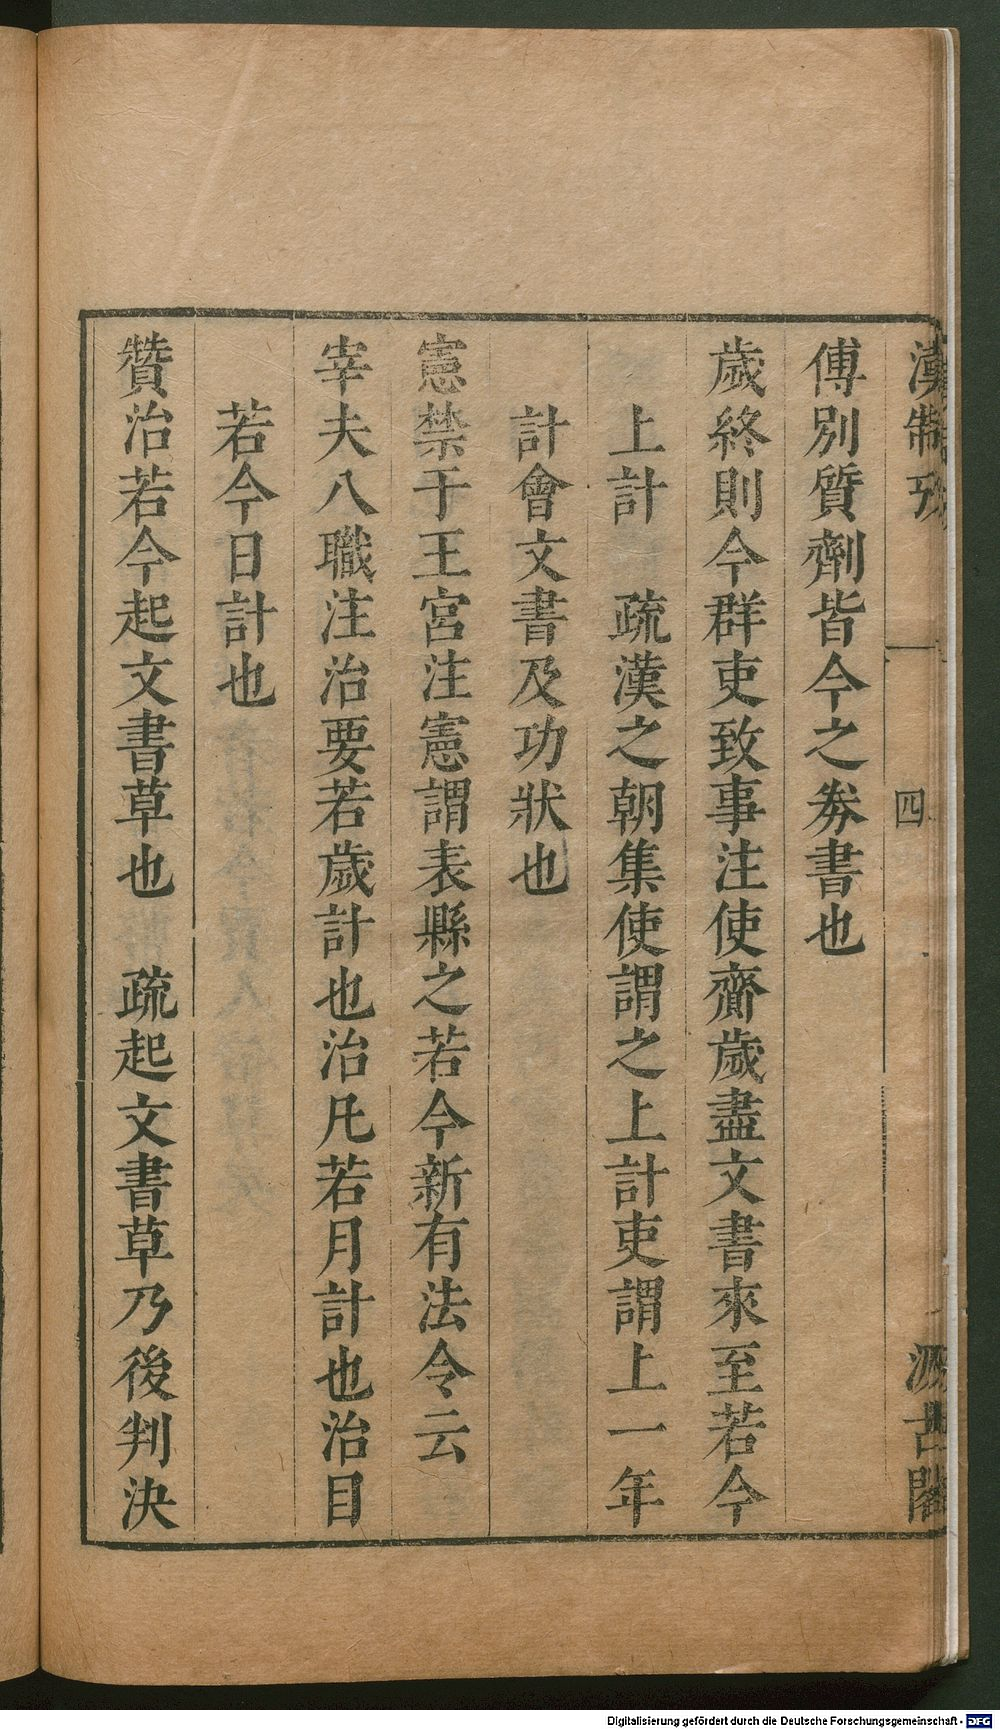 漢制攷
四
汲古閣
傅別質劑皆今之劵書也
歲終則令群吏致事注使齎歲盡文書來至若今
上計　疏漢之朝集使謂之上計吏謂上一年
計會文書及功狀也
憲禁于王宮注憲謂表縣之若今新有法令云
宰夫八職注治要若歲計也治凡若月計也治目
若今日計也
贊治若今起文書草也　疏起文書草乃後判決
Digitalisierung gefördert durch die Deutsche Forschungsgemeinschaft - DFG